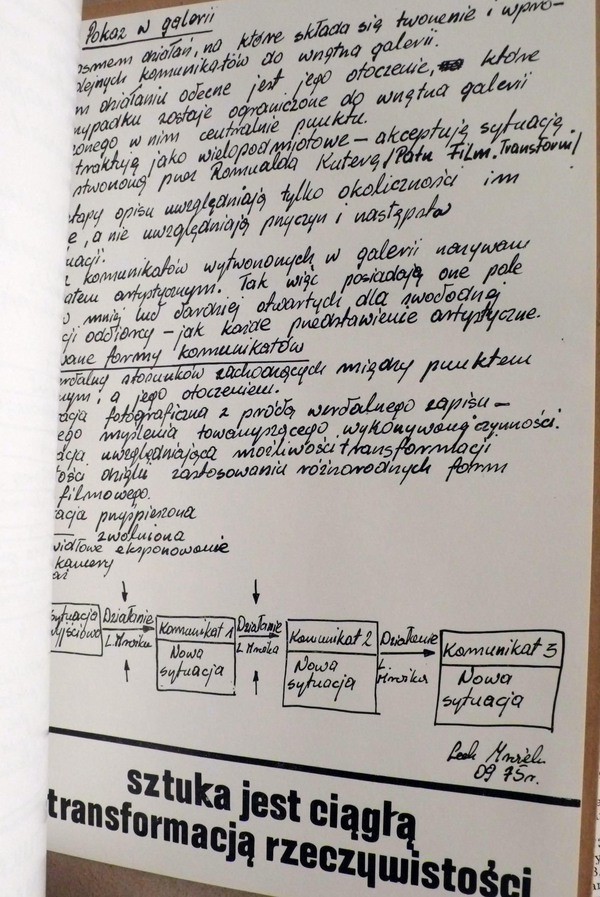 Pokaz w galerii
działań, na które składa się tworzenie i wpro-
komunikatów do wnętrza galerii.
działaniu obecne jest jego otoczenie, które
zostaje ograniczone do wnętrza galerii
w nim centralnie punktu.
traktują jako wielopodmiotowe – akceptują sytuację
przez Romualda Kuterę /Patrz Film. Transform/
etapy opisu uwzględniają tylko okoliczności im
e, a nie uwzględniają przyczyn i następstw
uacji.
komunikatów wytworzonych w galerii nazywam
artystycznym. Tak więc posiadają one pole
mniej lub bardziej otwartych dla swobodnej
cji odbiorcy – jak każde przedstawienie artystyczne.
wane formy komunikatów
stosunków zachodzących między punktem
nym, a jego otoczeniem.
acja fotograficzna z próbą werbalnego zapisu –
ego myślenia towarzyszącego wykonywaną czynności.
acja uwzględniająca możliwości transformacji
ości dzięki zastosowaniu różnorodnych form
filmowego.
acja przyśpieszona
— zwolniona
widłowe eksponowanie
kamery
sytuacja
Działanie
L. Mrożka
Komunikat 1
Nowa
sytuacja
Działanie
L Mrożka
Komunikat 2
Nowa
sytuacja
Działanie
L Mrożka
Komunikat 3
Nowa
sytuacja
Lech Mrożek
09 75 r.
sztuka jest ciągłą
transformacją rzeczywistości